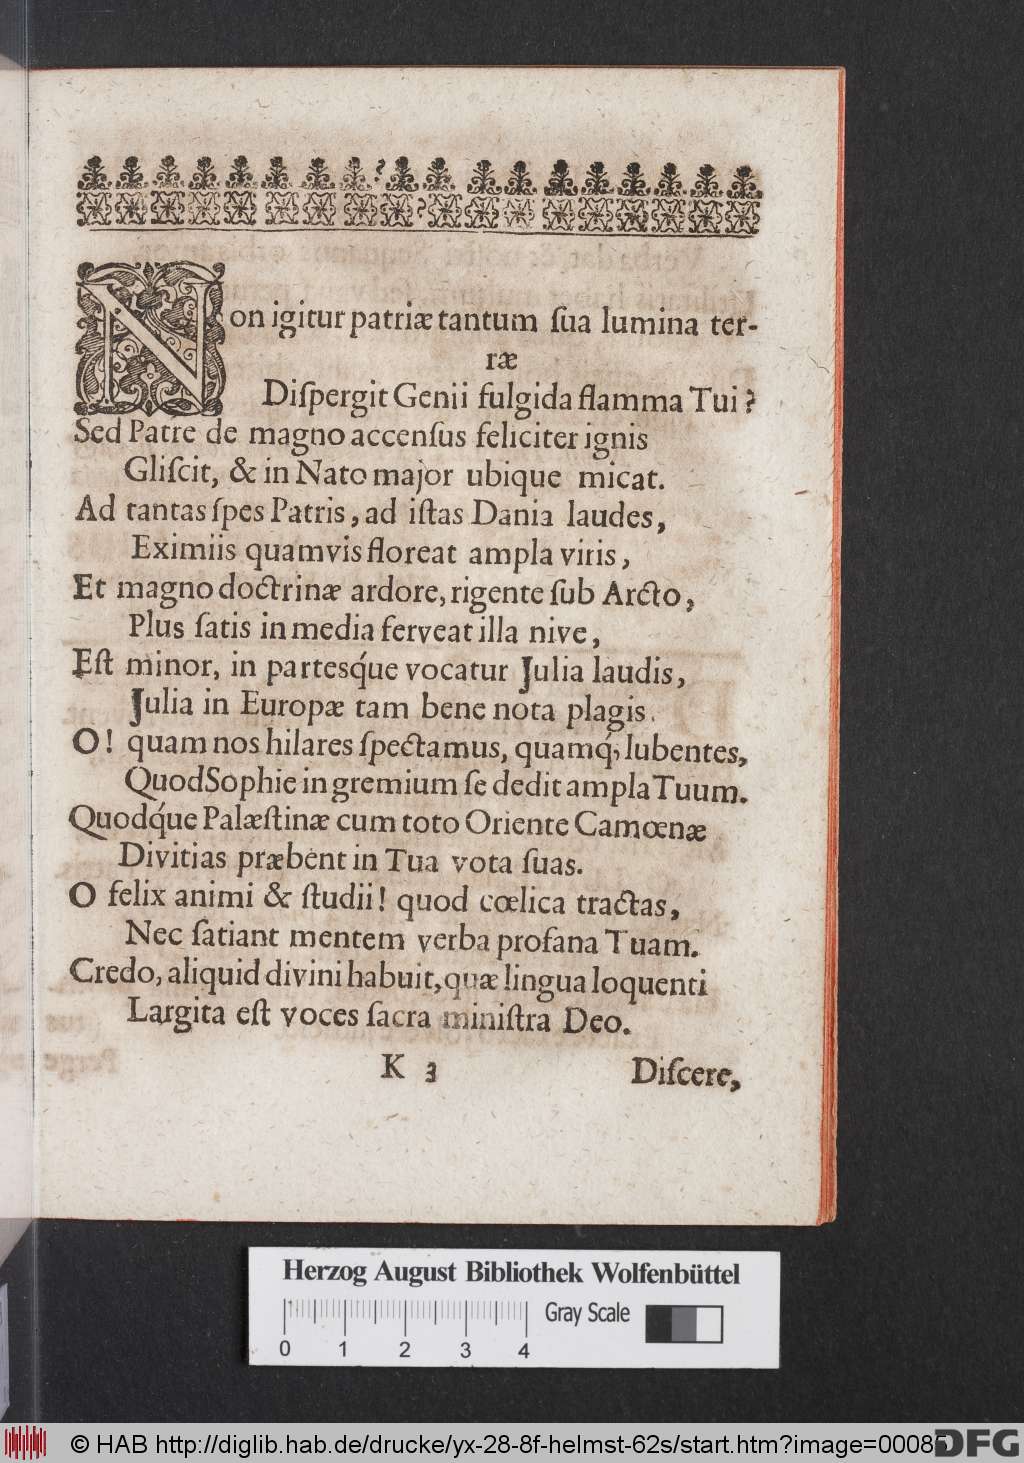 Non igitur patriæ tantum ſua lumina ter-
ræ
Diſpergit Genii fulgida flamma Tui?
Sed Patre de magno accenſus feliciter ignis
Gliſcit, & in Nato major ubique micat.
Ad tantas ſpes Patris, ad iſtas Dania laudes,
Eximiis quamvis floreat ampla viris,
Et magno doctrinæ ardore, rigente ſub Arcto,
Plus ſatis in media ferveat illa nive,
Eſt minor, in partesq́ue vocatur Julia laudis,
Julia in Europæ tam bene nota plagis.
O! quam nos hilares ſpectamus, quamq́; lubentes,
Quod Sophie in gremium ſe dedit ampla Tuum.
Quodq́ue Palæſtinæ cum toto Oriente Camœnæ
Divitias præbent in Tua vota ſuas.
O felix animi & ſtudii! quod cœlica tractas,
Nec ſatiant mentem verba profana Tuam.
Credo, aliquid divini habuit, quæ lingua loquenti
Largita eſt voces ſacra miniſtra Deo.
K 3
Diſcere,
Herzog August Bibliothek Wolfenbüttel
Gray Scale
0 1 2 3 4
© HAB http://diglib.hab.de/drucke/yx-28-8f-helmst-62s/start.htm?image=00085
DFG